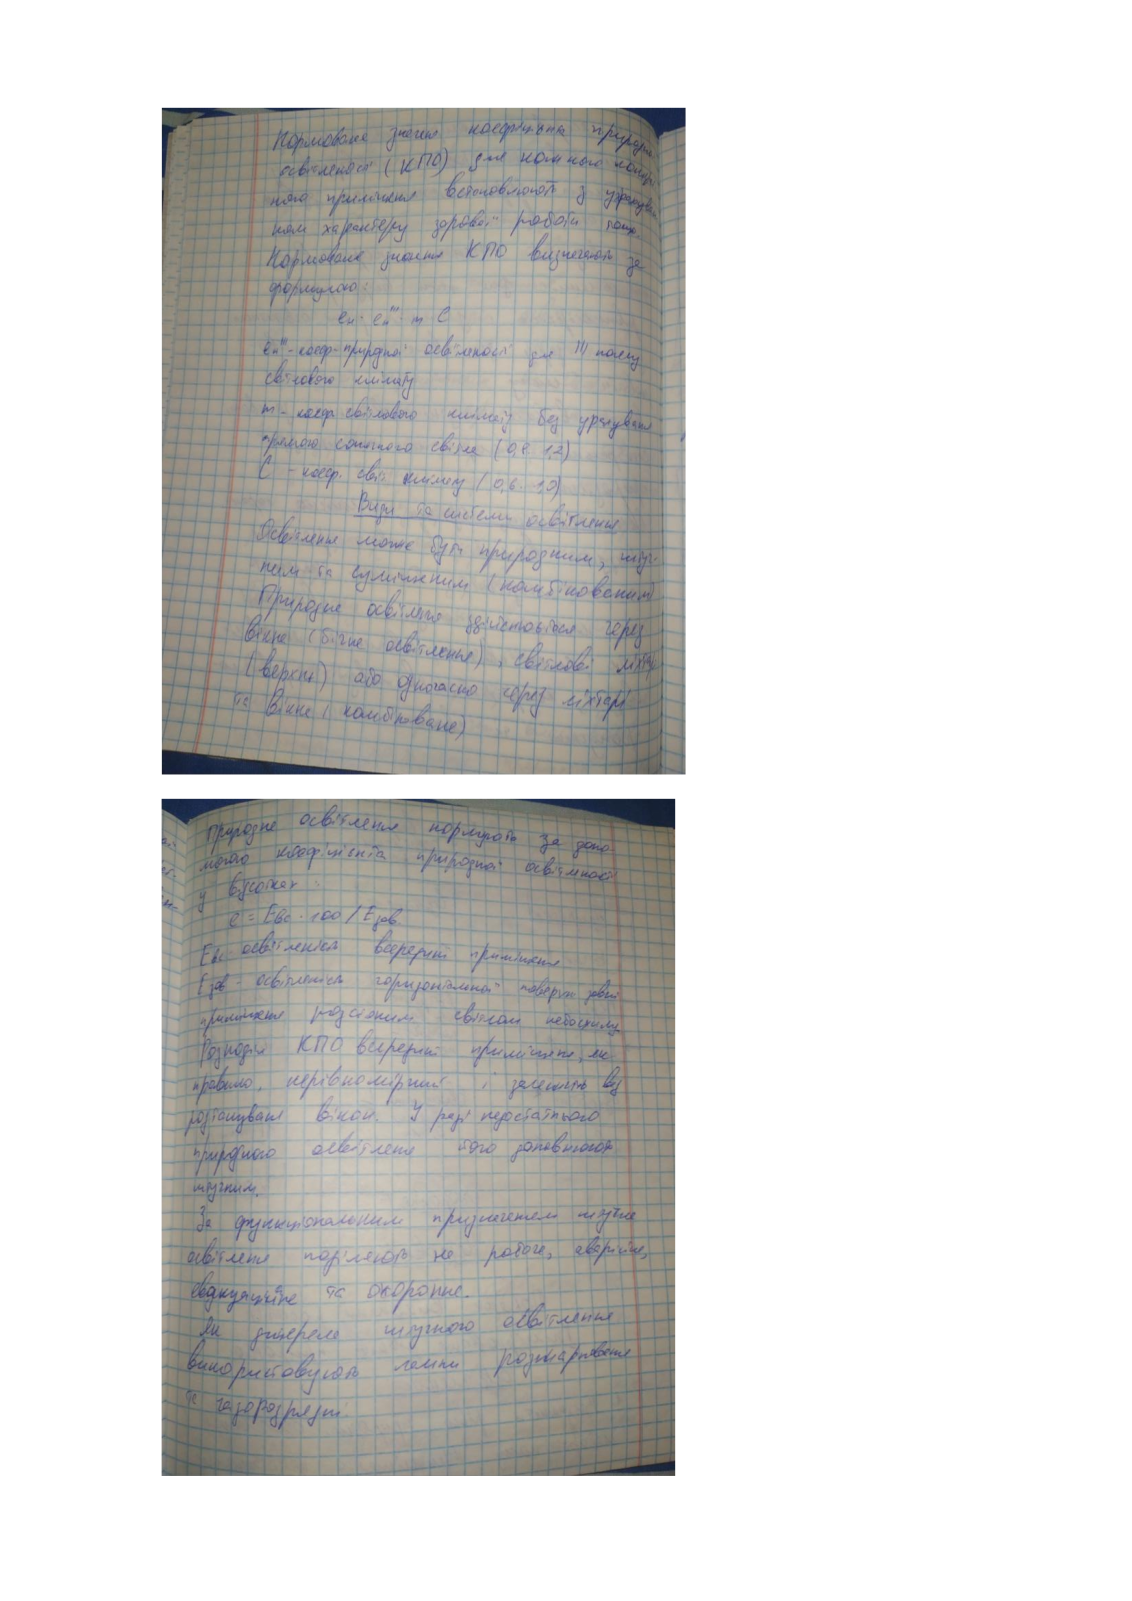 Нормоване значен коефіцієнта природн
освітленості (КПО) для кожного конкрет
ного приміщення встановлюють з урахуван
ням характеру зорової роботи
Нормоване значення КПО визначають за
формулою:
eн = eнᴵᴵᴵ · m C
eнᴵᴵᴵ - коеф. природної освітленості для III поясу
світлового клімату
m - коеф світлового клімату без урахування
прямого сонячного світла (0,8 - 1,2)
C - коеф. світ клімату (0,6 -
Види та системи освітлення
Освітлення може бути природним, штуч-
ним та суміщеним (комбінованим)
Природне освітлення здійснюється через
вікна (бічне освітлення), світлові ліхтарі
(верхнє) або одночасно через ліхтарі
та вікна (комбіноване)
Природне освітлення нормують за допо-
могою коефіцієнта природної освітленості
у відсотках:
e = Eвс · 100 / Eзов
Eвс освітленість всередині приміщення
Eзов - освітленість горизонтальної поверхні зовні
приміщення розсіяним світлом небосхилу
Розподіл КПО всередині приміщення, як
правило, нерівномірний і залежить від
розташуваня вікон. У разі недостатнього
природного освітлення його доповнюють
штучним.
За функціональним призначенням штучне
освітлення поділяють на робоче, аварійне,
евакуаційне та охоронне.
Як джерела штучного освітлення
використовують лампи розжарювання
та газорозрядні.